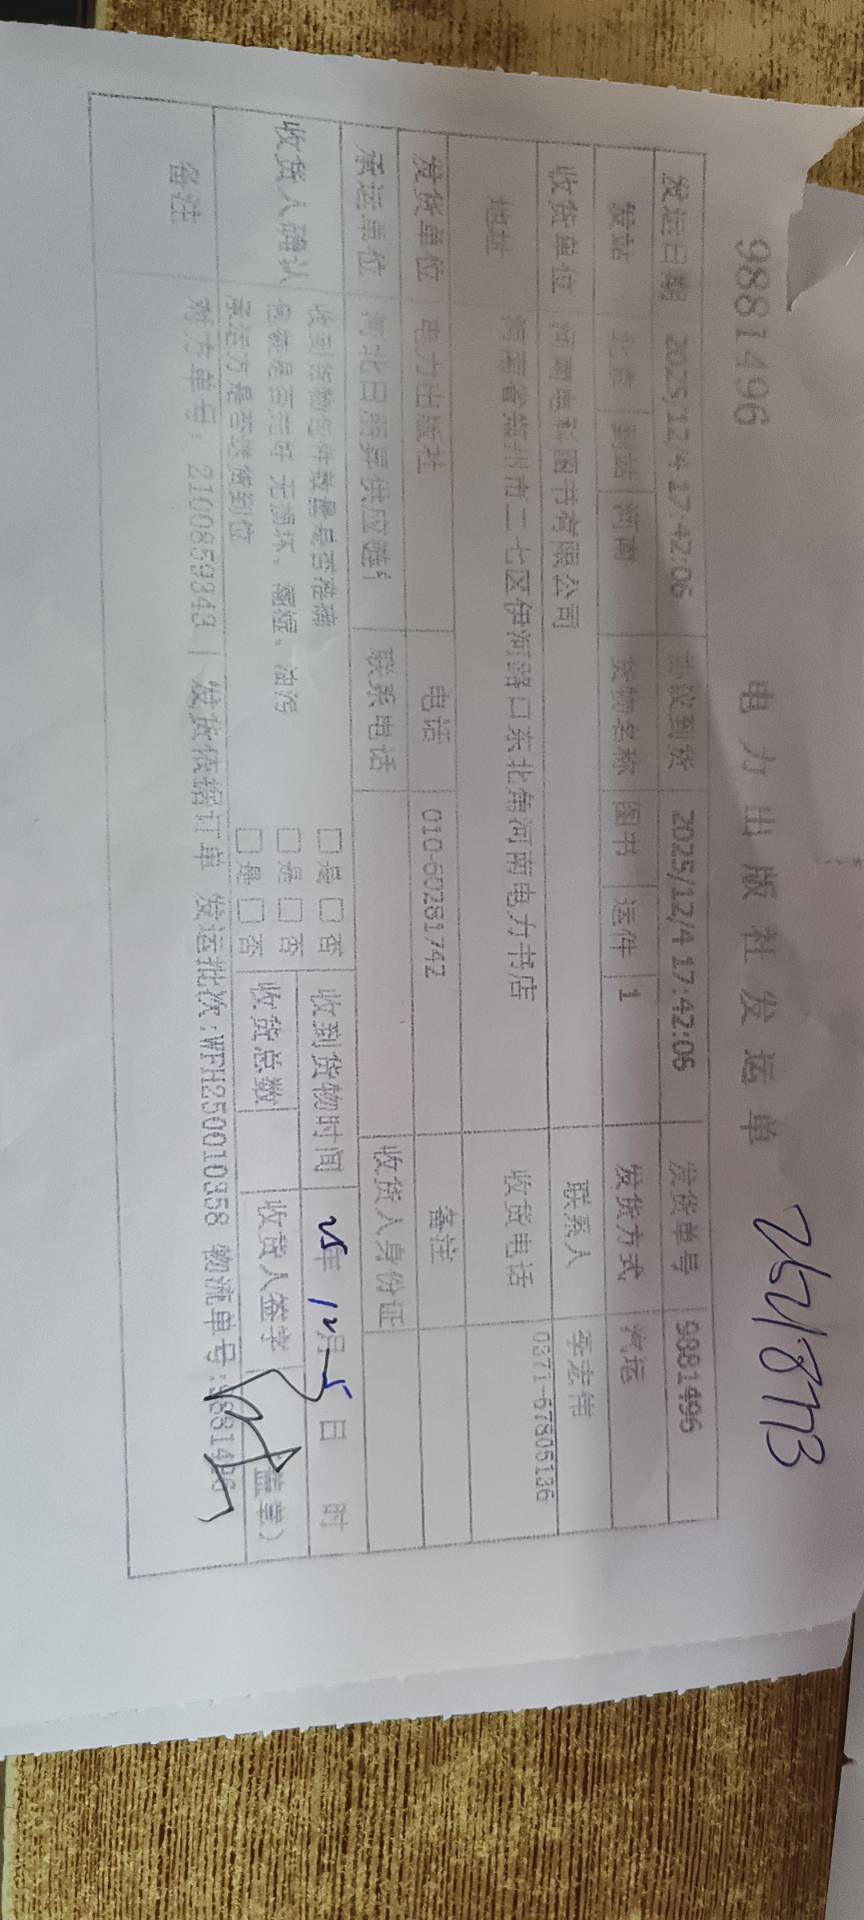 9881496 电力出版社发运单
发运日期 2025/12/4 17:42:06 协议到货 2025/12/4 17:42:06 发货单号 9881496
发站 北京 到站 河南 货物名称 图书 运件 1 发货方式 汽运
收货单位 河南电科图书有限公司 联系人
地址 河南省郑州市二七区伊河路口东北角河南电力书店 收货电话 0371-67905136
发货单位 电力出版社 电话 010-60281742 备注
承运单位 河北日朋昇供应链 联系电话 收货人身份证
收货人确认 收到货物包件数量是否准确 □是 □否 收到货物时间 25年12月5日 时
包装是否完好 无损坏、潮湿、油污 □是 □否
承运方是否送货到位 □是 □否 收货总数 收货人签字 盖章)
备注 对方单号: 2100859343 | 发货依据订单 发运批次:WFH250010358 物流单号:9881496